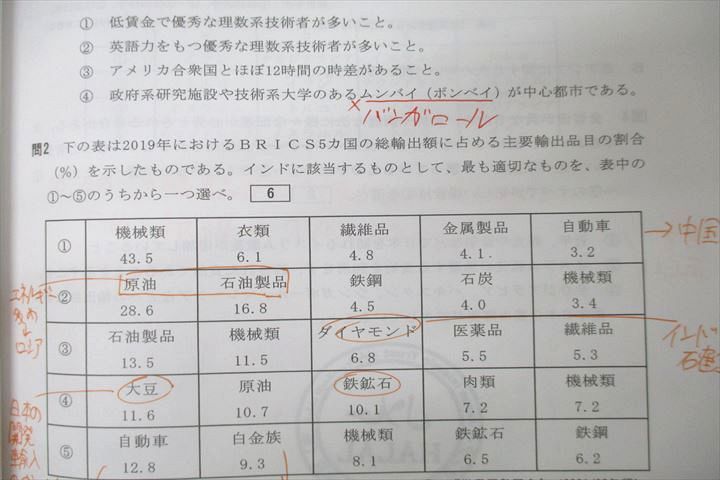 ① 低賃金で優秀な理数系技術者が多いこと。
② 英語力をもつ優秀な理数系技術者が多いこと。
③ アメリカ合衆国とほぼ12時間の時差があること。
④ 政府系研究施設や技術系大学のあるムンバイ（ボンベイ）が中心都市である。
×
バンガロール
問2 下の表は2019年におけるＢＲＩＣＳ5カ国の総輸出額に占める主要輸出品目の割合
（%）を示したものである。インドに該当するものとして、最も適切なものを、表中の
①～⑤のうちから一つ選べ。 6
① 機械類 衣類 繊維品 金属製品 自動車
43.5 6.1 4.8 4.1. 3.2
→中国
② 原油 石油製品 鉄鋼 石炭 機械類
28.6 16.8 4.5 4.0 3.4
ロシア
③ 石油製品 機械類 ダイヤモンド 医薬品 繊維品
13.5 11.5 6.8 5.5 5.3
④ 大豆 原油 鉄鉱石 肉類 機械類
11.6 10.7 10.1 7.2 7.2
日本の
開発
輸入
⑤ 自動車 白金族 機械類 鉄鉱石 鉄鋼
12.8 9.3 8.1 6.5 6.2